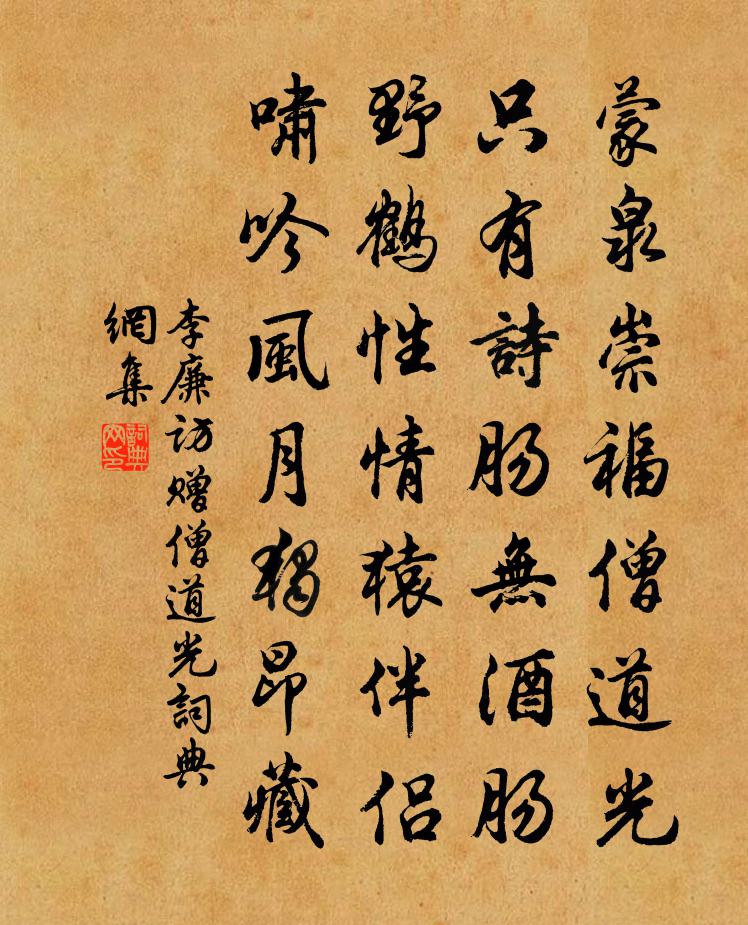 蒙泉崇福僧道光
只有詩肠無酒肠
野鶴性情猿伴侣
嘯吟風月獨昂藏
李廉访赠僧道光詞典
網集
詞典
网印